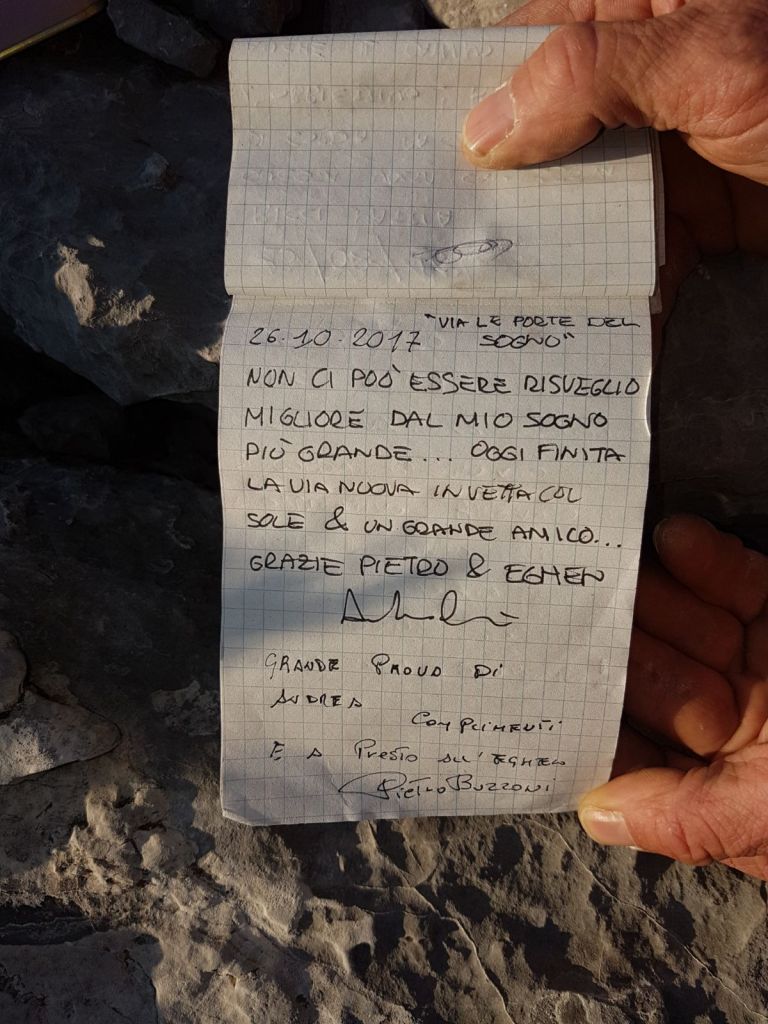 26.10.2017 "VIA LE PORTE DEL
SOGNO"
NON CI POÒ ESSERE RISVEGLIO
MIGLIORE DAL MIO SOGNO
PIÙ GRANDE... OGGI FINITA
LA VIA NUOVA IN VETTA COL
SOLE & UN GRANDE AMICO...
GRAZIE PIETRO & EGHEN
GRANDE PROVA DI
ANDREA
COMPLIMENTI
E A PRESTO ALL'EGHEN
Pietro Buzzoni